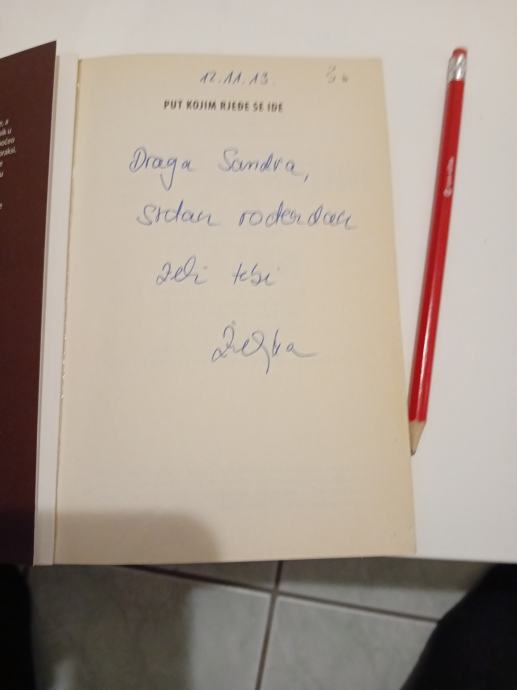 12.11.13.
PUT KOJIM RJEĐE SE IDE
Draga Sandra,
srdan rođendan
želi tebi
Željka